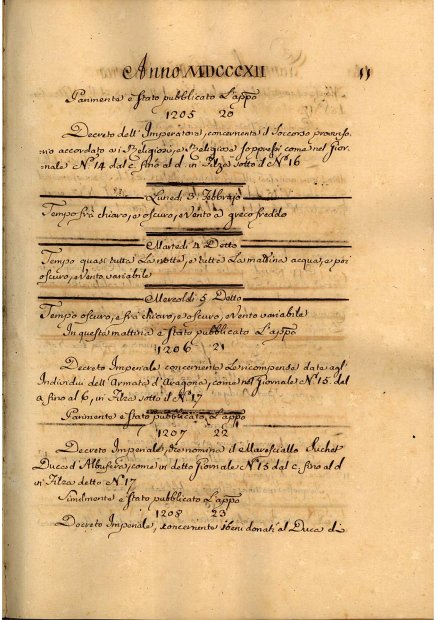 Anno MDCCCXII
11
Parimente è stato pubblicato l'appō
1205 20
Decreto dell'Imperatore, concernente il Soccorso provviso:
rio accordato a i Religiosi, e Religiose soppressi come nel Gior:
nale N.º 14 dal c. fino al d. in Filza sotto il N.º 16
Lunedì 3. Febbrajo
Tempo frà chiaro, e oscuro, e vento a greco freddo
Martedì 4 Detto
Tempo quasi tutta la notte, e tutta la mattina acqua, e poi
oscuro, e vento variabile
Mercoldi 5 Detto
Tempo oscuro, e frà chiaro, e oscuro, e vento variabile
In questa mattina è stato pubblicato l'appō
1206 21
Decreto Imperiale concernente le ricompense date agl'
Individui dell'Armata d'Aragona, come nel Giornale N.º 15. dal
a fino al b, in Filza sotto il N.º 17
Parimente è stato pubblicato l'appō
1207 22
Decreto Imperiale, che nomina il Maresciallo Suchet
Duca d'Albufera, come in detto Giornale N.º 15 dal c. fino al d
in Filza detto N.º 17
Similmente è stato pubblicato l'appō
1208 23
Decreto Imperiale, concernente i beni donati al Duca di